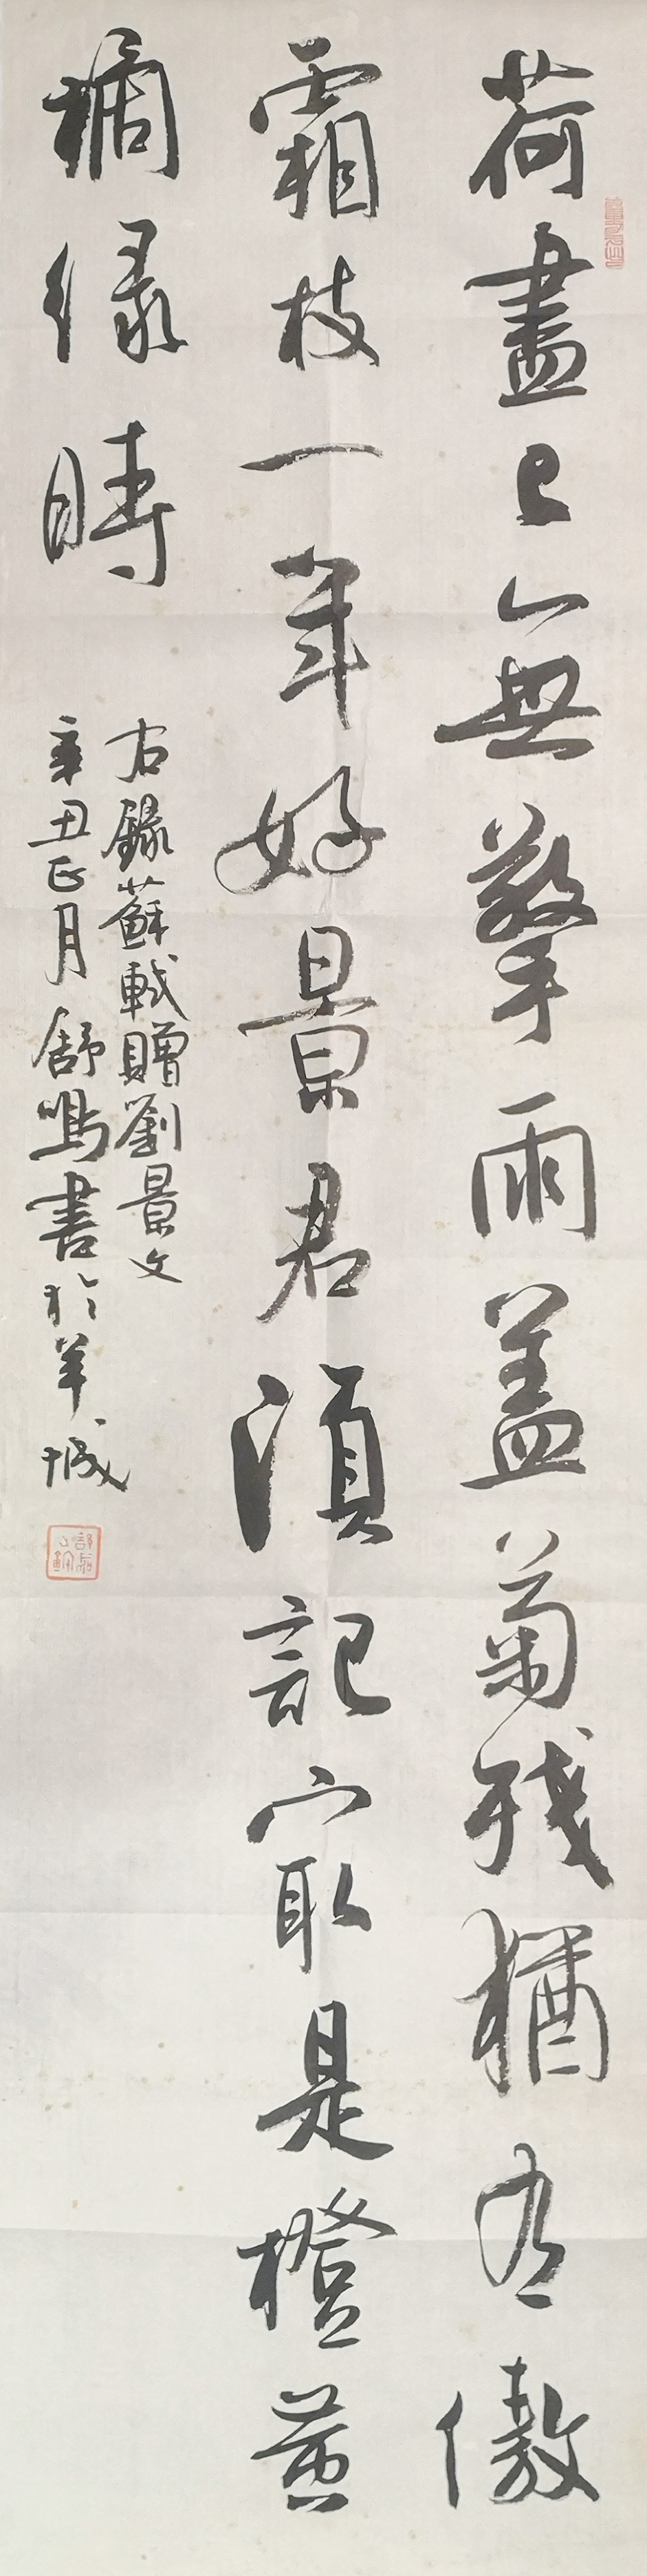 荷盡已無擎雨蓋菊殘猶有傲
霜枝一年好景君須記最是橙黃
橘緑時
右録蘇軾贈劉景文
辛丑正月舒鳴書於羊城